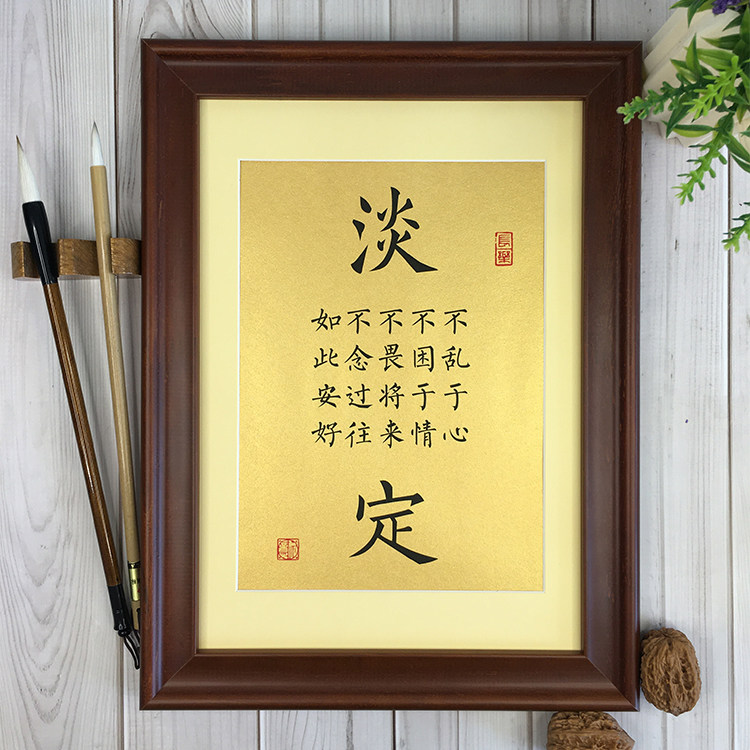 淡
不乱于心
不困于情
不畏将来
不念过往
如此安好
定
长乐